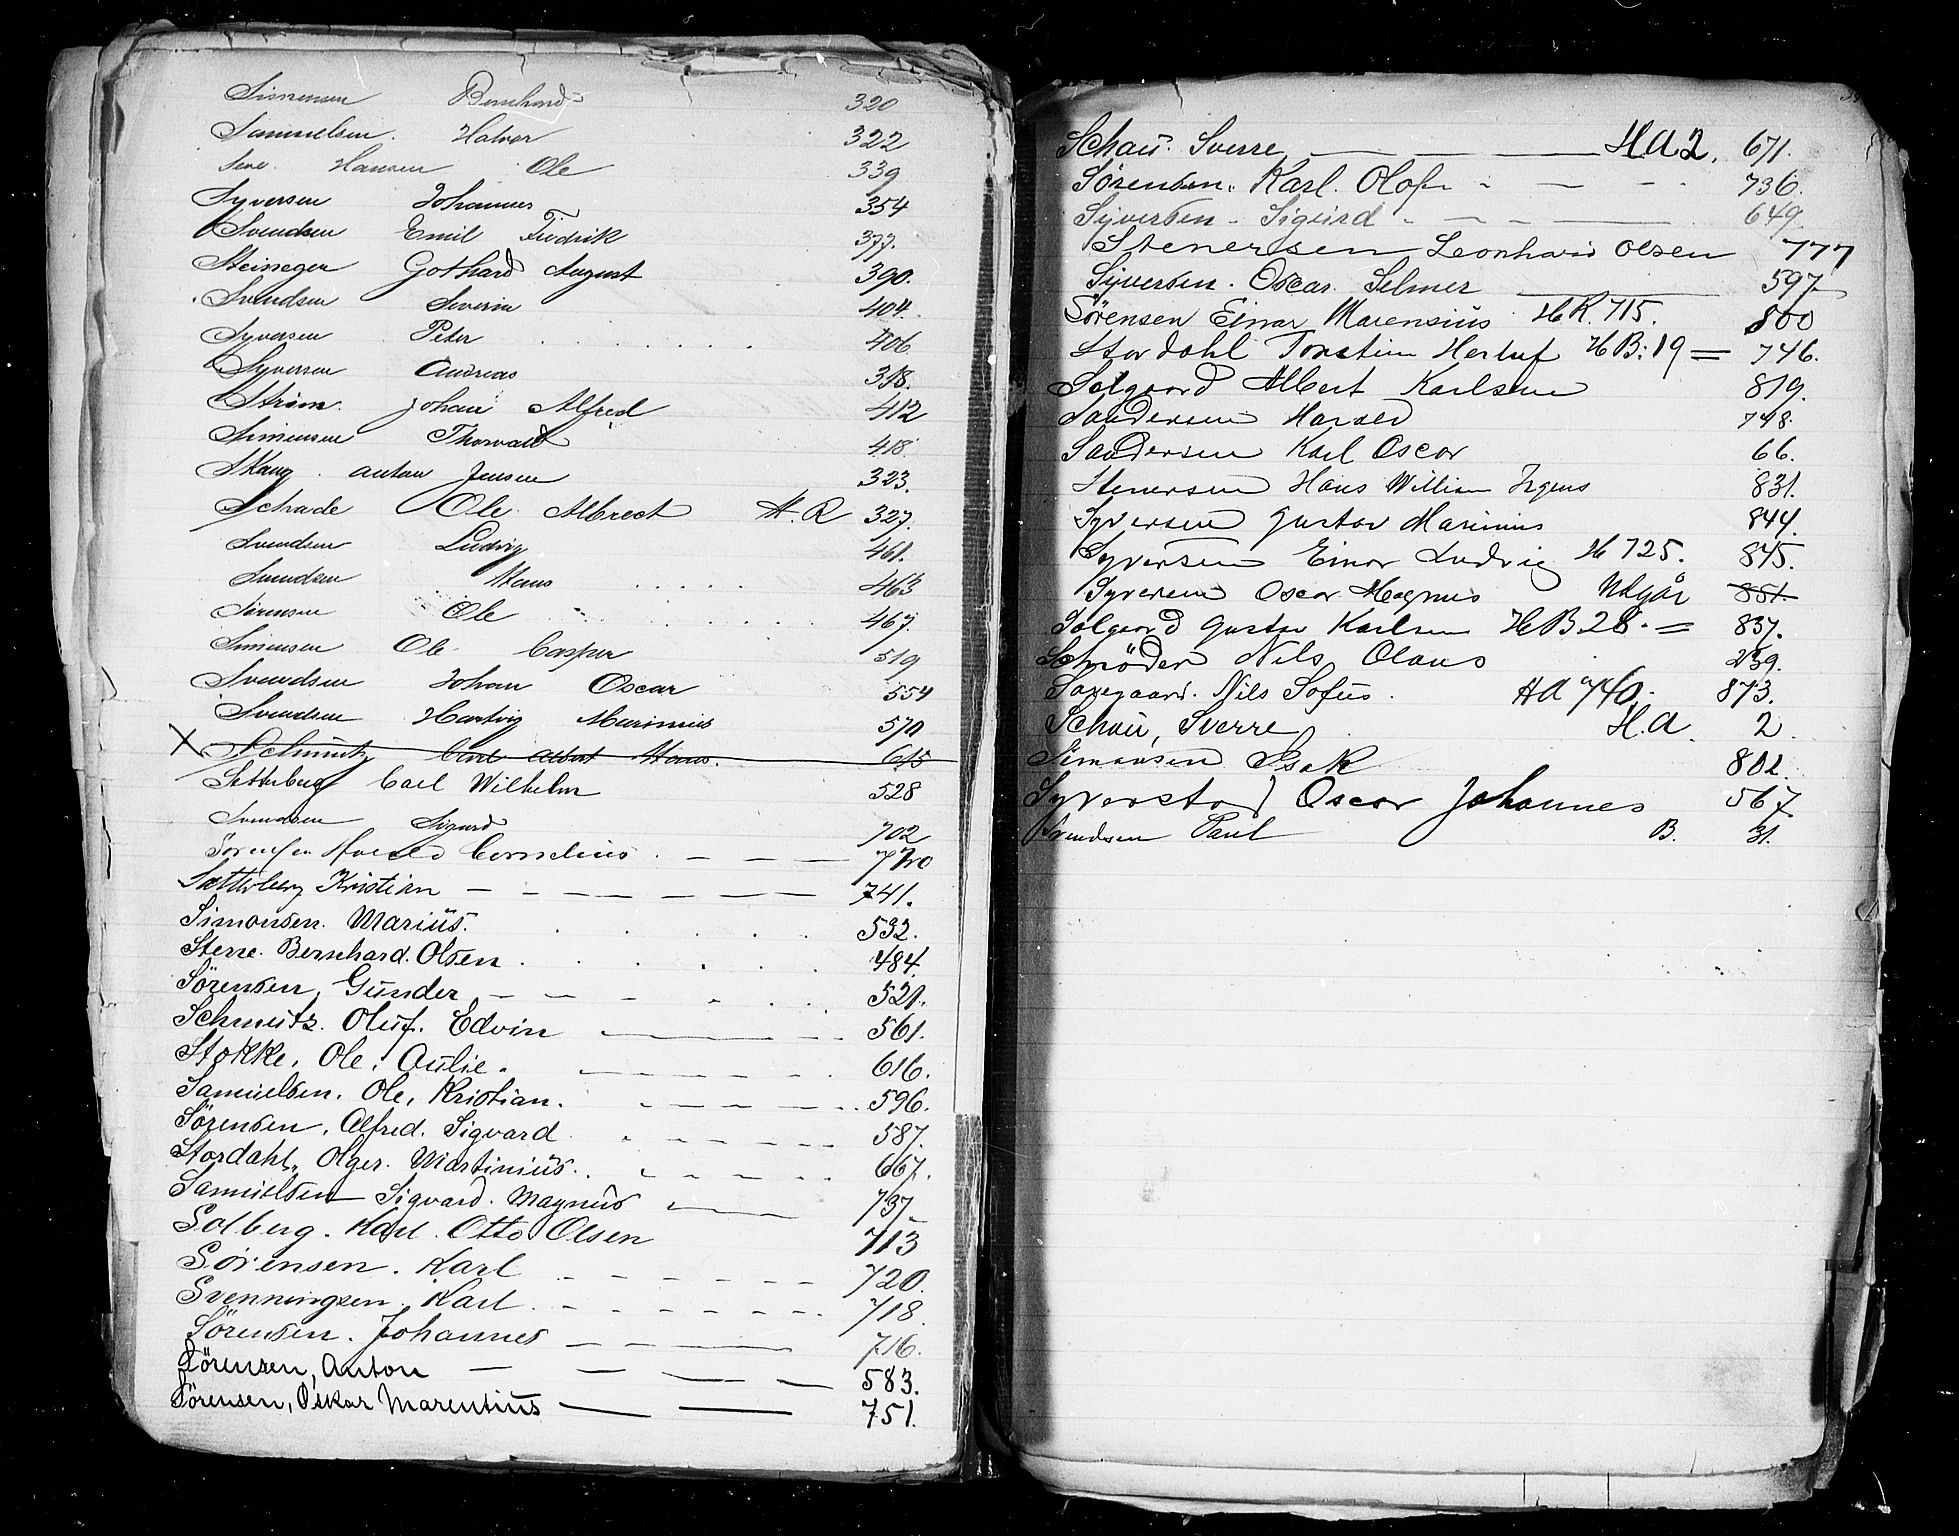 Simensen Bernhard 320
Samuelsen. Halvor 322
Hansen Ole 339
Syversen Johannes 354
Svendsen Emil Fredrik 377.
Steineger Gothard August 390.
Svendsen Severin 404.
Syversen Peter 406
Syversen Andreas 318.
Strøm. Johan Alfred 412
Simensen Thorvald 418.
Skaug. Anton Jensen 323.
Schade Ole Albrect H. R 327.
Svendsen Ludvig 461.
Svendsen Hans 463
Sørensen Ole 467.
Simensen Ole Casper 519
Svendsen Johan Oscar 554
Svendsen Hartvig Marinius 570
X Schmutz Carl Albert Hans. 615
Sætterberg Carl Wilhelm 528
Svendsen Sigurd 702
Sørensen Cornelius. 770
Sætterberg Kristian 741.
Simonsen. Marius. 532.
Stene. Bernhard. Olsen. 484.
Sørensen, Gunder 521.
Schmutz. Oluf. Edvin 561.
Stokke, Ole, Aulie. 616.
Samuelsen. Ole, Kristian. 596.
Sørensen, Alfred. Sigvard 587.
Stordahl, Olger. Martinius. 667.
Samuelsen Sigvard. Magnus 737.
Solberg. Karl. Otto Olsen 713
Sørensen. Karl 720.
Svenningsen. Karl. 718.
Sørensen. Johannes 716.
Sørensen, Anton 583.
Sørensen, Oskar Marentius 751.
Schau. Sverre H.A 2. 671.
Sørensen. Karl. Olof 736.
Syversen. Sigurd 649.
Stenersen Leonhard Olsen 777
Syversen. Oscar. Selmer 597.
Sørensen Einar Marensius H R. 715. 800
Stordahl Torstein Herluf H B: 19 = 746.
Solgaard Albert Karlsen 819.
Sandersen Harald 748.
Sandersen Karl Oscar 66.
Stenersen Hans William Irgens 831.
Syversen Gustav Marinius 844.
Syversen Einar Ludvig H 725. 845.
Syversen Oscar Magnus Utgår 851.
Solgaard Gustav Karlsen H B 28. = 837.
Schrøder Nils Olaus 239.
Nils Sofus. H A 740. 873.
Schau, Sverre, H.A. 2.
Simonsen Isak 802.
Syverstad Oscar Johannes 567.
Svendsen Paul B. 31.